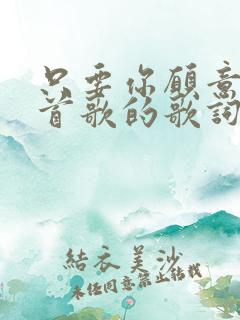 只要你愿意
首歌的歌词
結衣美沙
未经同意禁止转载